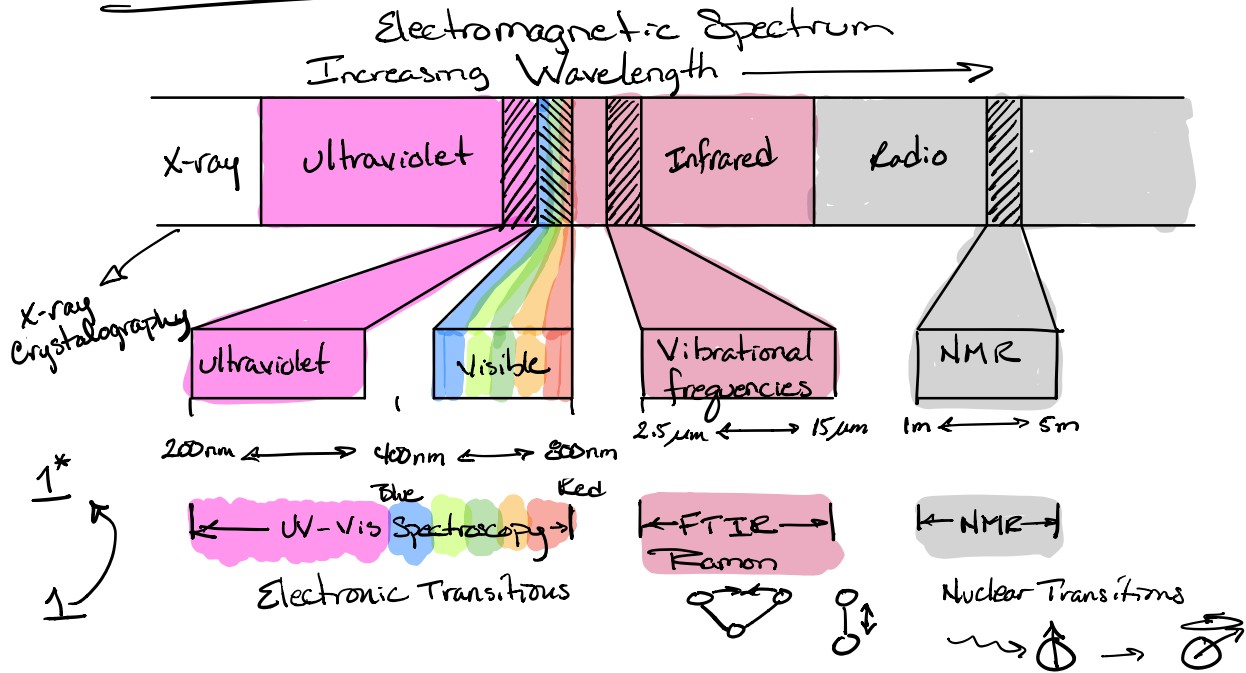 Electromagnetic Spectrum
Increasing Wavelength
X-ray
Ultraviolet
Infrared
Radio
X-ray
Crystalography
Ultraviolet
Visible
Vibrational
frequencies
NMR
200nm
400nm
800nm
2.5 μm
15 μm
1m
5m
1*
1
Blue
Red
UV-Vis Spectroscopy
FTIR
Ramon
NMR
Electronic Transitions
Nuclear Transitions